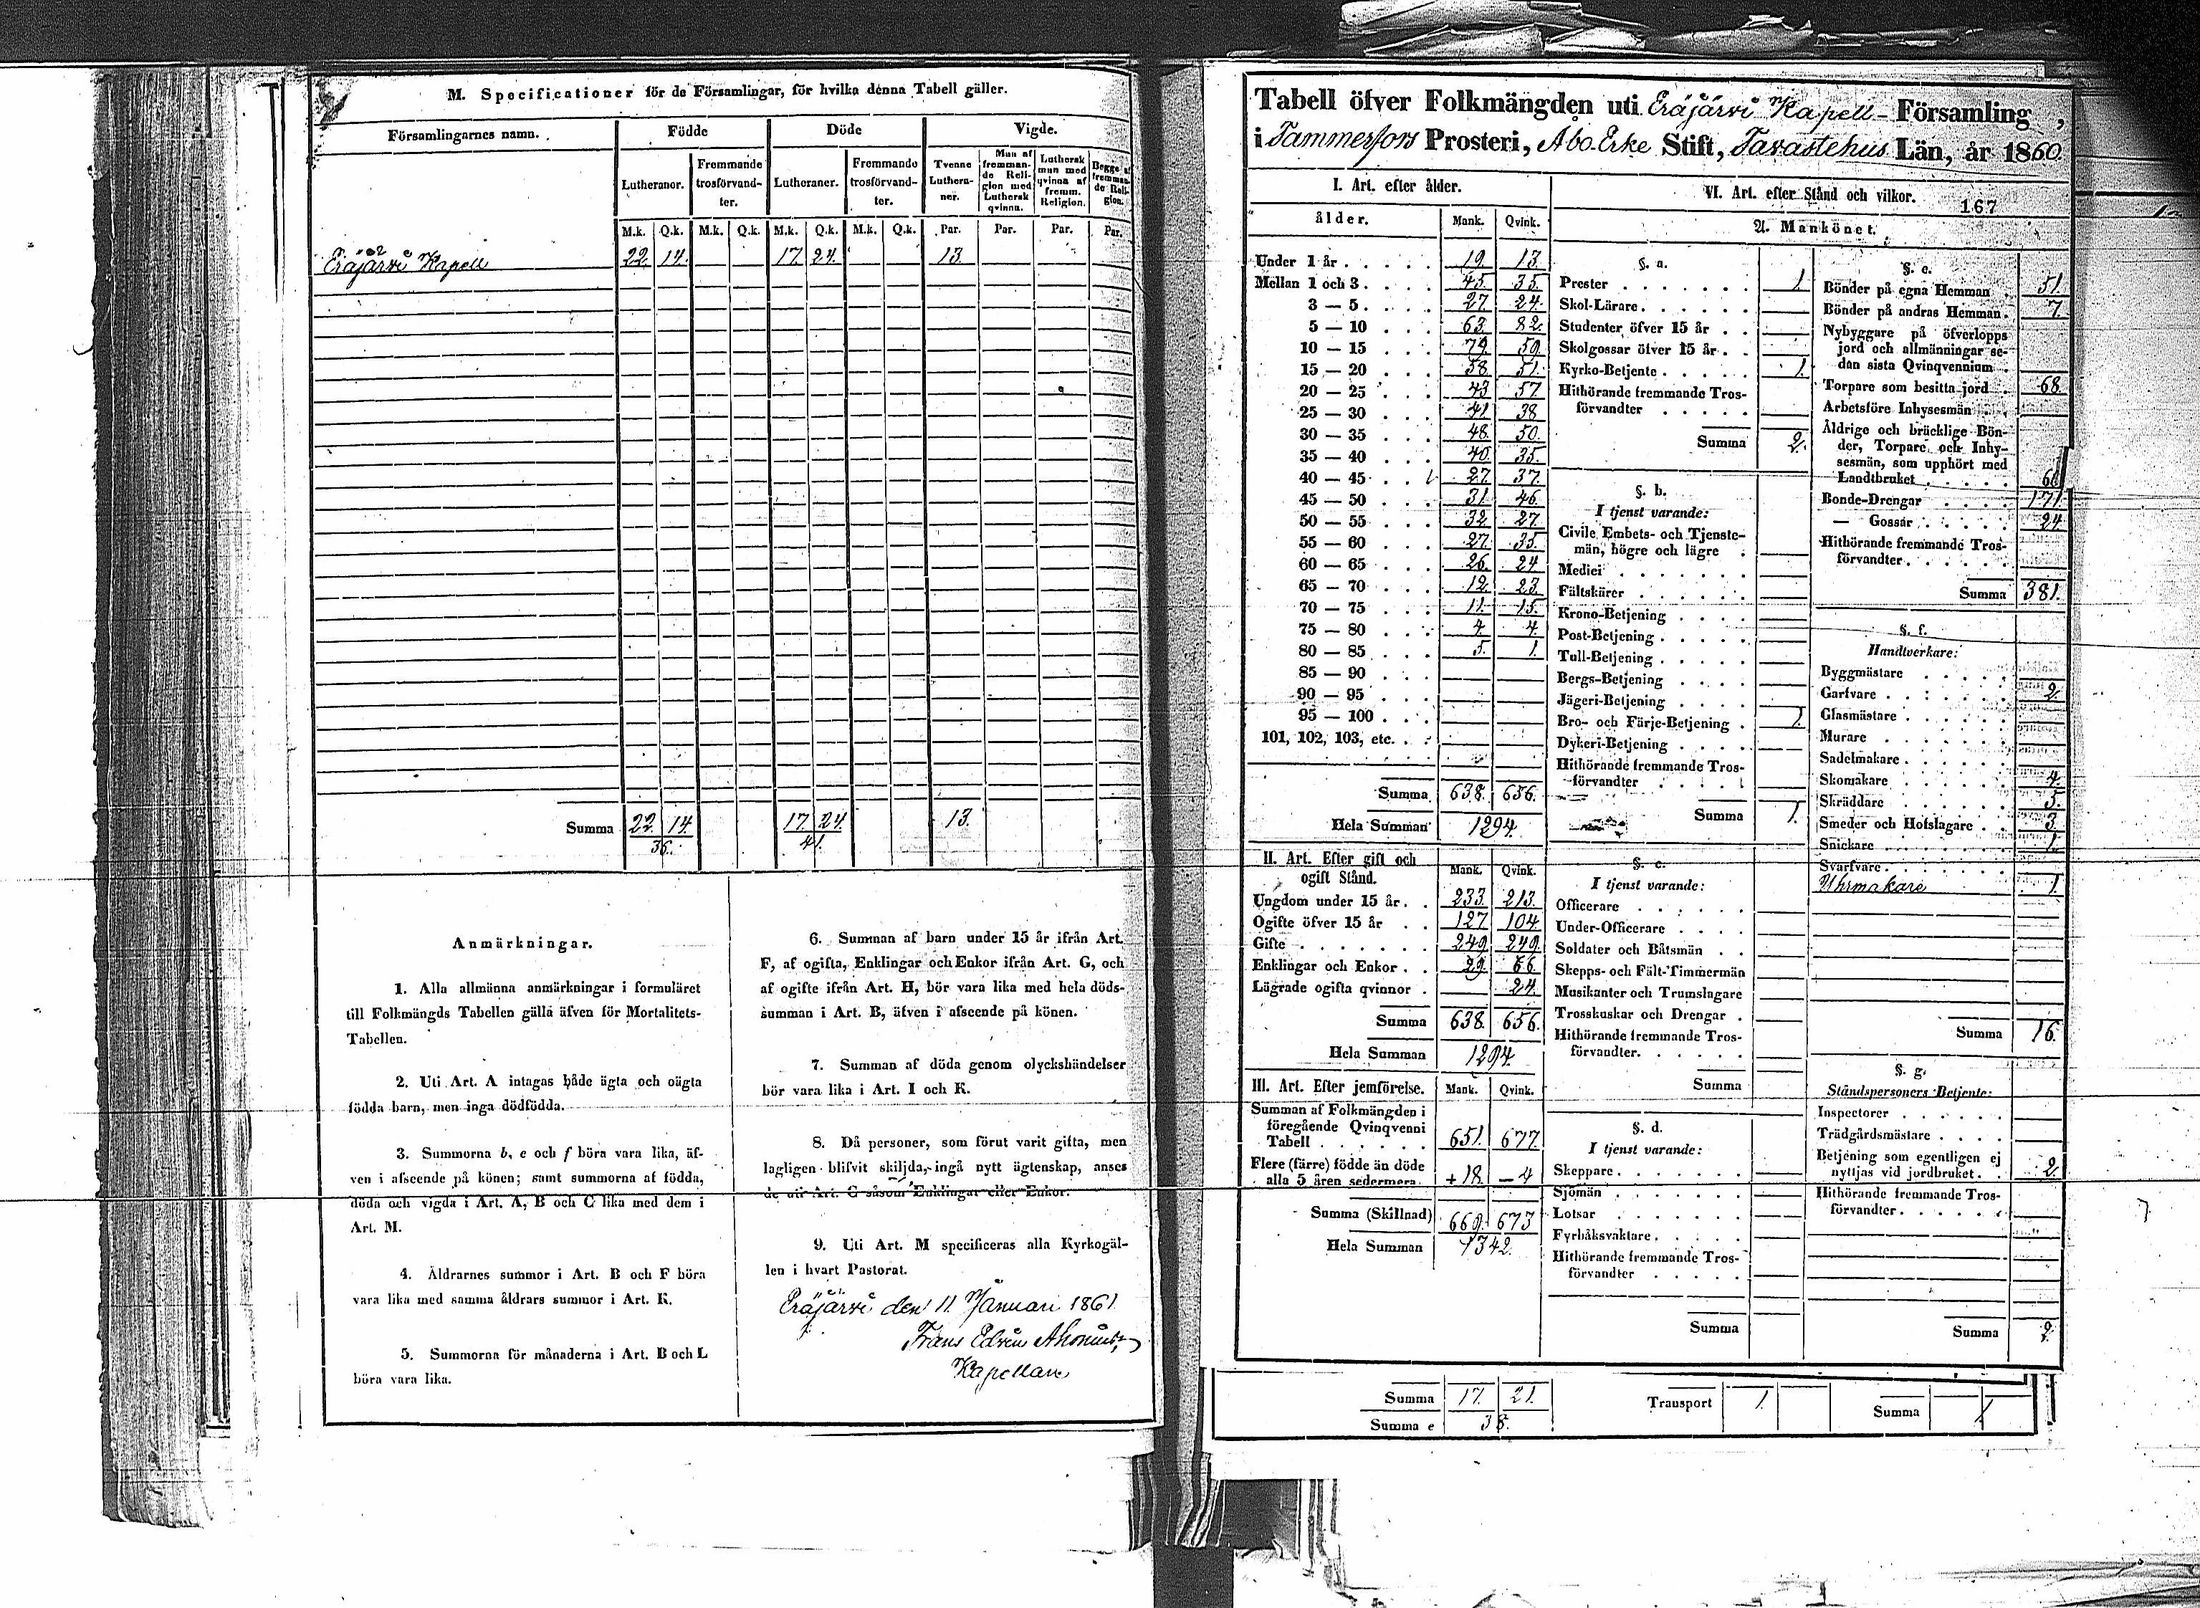 M. Specificationer för de Församlingar, för hvilka denna Tabell gäller.
Församlingarnes namn. Födde Döde Vigde.
Lutheraner. Fremmande trosförvandter. Lutheraner. Fremmande trosförvandter. Tvenne Lutheraner. Man af fremmande Religion med Luthersk qvinna. Luthersk man med qvinna af fremm. Religion. Begge af fremmande Religion.
M.k. Q.k. M.k. Q.k. M.k. Q.k. M.k. Q.k. Par. Par. Par. Par.
Eräjärvi Kapell 22. 14. 17. 24. 13.
Summa 22. 14. 17. 24. 13.
36. 41.
Anmärkningar.
1. Alla allmänna anmärkningar i formuläret
till Folkmängds Tabellen gälla äfven för Mortalitets-
Tabellen.
2. Uti Art. A intagas både ägta och oägta
födda barn, men inga dödfödda.
3. Summorna b, e och f böra vara lika, äf-
ven i afseende på könen; samt summorna af födda,
döda och vigda i Art. A, B och C lika med dem i
Art. M.
4. Åldrarnes summor i Art. B och F böra
vara lika med samma åldrars summor i Art. K.
5. Summorna för månaderna i Art. B och L
böra vara lika.
6. Summan af barn under 15 år ifrån Art.
F, af ogifta, Enklingar och Enkor ifrån Art. G, och
af ogifte ifrån Art. H, bör vara lika med hela döds-
summan i Art. B, äfven i afseende på könen.
7. Summan af döda genom olyckshändelser
bör vara lika i Art. I och K.
8. Då personer, som förut varit gifta, men
lagligen blifvit skiljda, ingå nytt ägtenskap, anses
de uti Art. C såsom Enklingar eller Enkor.
9. Uti Art. M specificeras alla Kyrkogäl-
len i hvart Pastorat.
Eräjärvi den 11 Januari 1861.
Frans Edvin
Kapellan
Tabell öfver Folkmängden uti Eräjärvi Kapell-Församling,
i Tammerfors Prosteri, Åbo Erke Stift, Tavastehus Län, år 1860.
167
I. Art. efter ålder.
ålder. Mank. Qvink.
Under 1 år 19. 13.
Mellan 1 och 3 45. 35.
3 — 5 27. 24.
5 — 10 63. 82.
10 — 15 79. 59.
15 — 20 58. 51.
20 — 25 43 57
25 — 30 41. 38
30 — 35 48. 50.
35 — 40 40. 35.
40 — 45 27. 37.
45 — 50 31. 46.
50 — 55 32. 27.
55 — 60 27. 35.
60 — 65 26. 24.
65 — 70 12. 23.
70 — 75 11. 15.
75 — 80 4. 4.
80 — 85 5. 1.
85 — 90
90 — 95
95 — 100
101, 102, 103, etc.
Summa 638. 656.
Hela Summan 1294.
II. Art. Efter gift och
ogift Stånd. Mank. Qvink.
Ungdom under 15 år 233. 213.
Ogifte öfver 15 år 127 104.
Gifte 249. 249.
Enklingar och Enkor 29. 66.
Lägrade ogifta qvinnor 24.
Summa 638. 656.
Hela Summan 1294.
III. Art. Efter jemförelse. Mank. Qvink.
Summan af Folkmängden i
föregående Qvinqvenni
Tabell 651. 677.
Flere (färre) födde än döde
alla 5 åren sedermera + 18. — 4
Summa (Skillnad) 669. 673
Hela Summan 1342.
VI. Art. efter Stånd och vilkor.
A. Mankönet.
§. a.
Prester 1.
Skol-Lärare
Studenter öfver 15 år
Skolgossar öfver 15 år
Kyrko-Betjente 1.
Hithörande fremmande Tros-
förvandter
Summa 2.
§. b.
I tjenst varande:
Civile Embets- och Tjenste-
män, högre och lägre
Medici
Fältskärer
Krono-Betjening
Post-Betjening
Tull-Betjening
Bergs-Betjening
Jägeri-Betjening
Bro- och Färje-Betjening 1.
Dykeri-Betjening
Hithörande fremmande Tros-
förvandter
Summa 1.
§. c.
I tjenst varande:
Officerare
Under-Officerare
Soldater och Båtsmän
Skepps- och Fält-Timmermän
Musikanter och Trumslagare
Trosskuskar och Drengar
Hithörande fremmande Tros-
förvandter.
Summa
§. d.
I tjenst varande:
Skeppare
Sjömän
Lotsar
Fyrbåksvaktare
Hithörande fremmande Tros-
förvandter
Summa
§. e.
Bönder på egna Hemman 51.
Bönder på andras Hemman 7.
Nybyggare på öfverlopps
jord och allmänningar se-
dan sista Qvinqvennium
Torpare som besitta jord 68
Arbetsföre Inhysesmän
Åldrige och bräcklige Bön-
der, Torpare och Inhy-
sesmän, som upphört med
Landtbruket 60
Bonde-Drengar 171.
— Gossar 24
Hithörande fremmande Tros-
förvandter
Summa 381.
§. f.
Handtverkare:
Byggmästare
Garfvare 2.
Glasmästare
Murare
Sadelmakare
Skomakare 4.
Skräddare 5.
Smeder och Hofslagare 3.
Snickare 1.
Svarfvare
Uhrmakare 1.
Summa 16.
§. g.
Ståndspersoners Betjente:
Inspectorer
Trädgårdsmästare
Betjening som egentligen ej
nyttjas vid jordbruket. 2.
Hithörande fremmande Tros-
förvandter
Summa 2.
Summa 17. 21. Transport 1. Summa 1
Summa e 38.